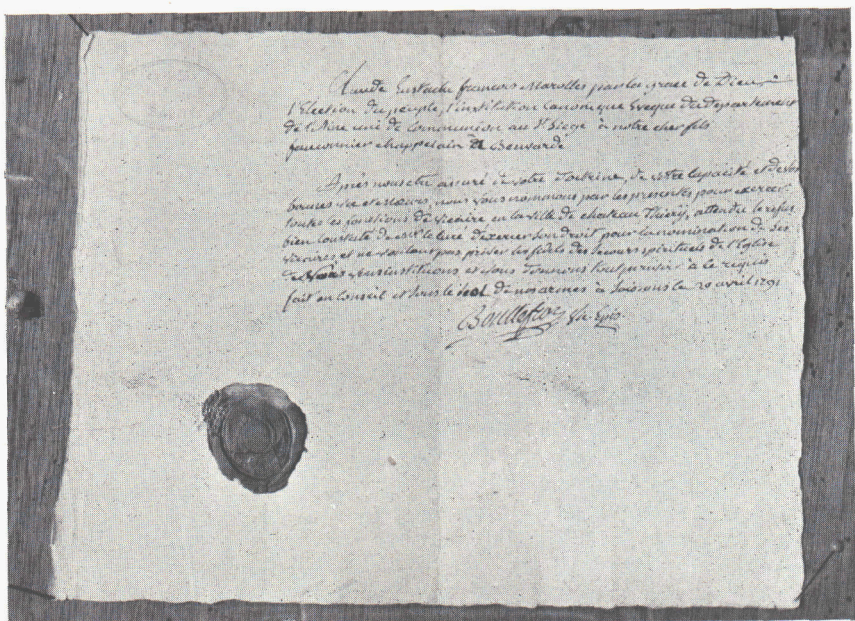 Claude Eustache françois Marolles par la grace de Dieu,
l'Election du peuple, l'institution Canonique Eveque du departement
de l'Aisne uni de Communion au St Siege à notre cher fils
fauconnier chappelain à Beuvarde
Après nous etre assuré de votre Doctrine, de votre Capacité et de vos
bonnes vie et mœurs, nous vous nommons par les presentes pour exercer
toutes les fonctions de vicaire en la ville de chateau Thiery, attendu le refus
bien constaté de Mr le curé d'exercer son droit pour la nomination de ses
vicaires et ne voulant pas priver les fidels des secours spirituels de l'Eglise
vous instituons et vous donnons tout pouvoir à ce requis
fait en Conseil et sous le scel de nos armes à Soissons le 29 avril 1791